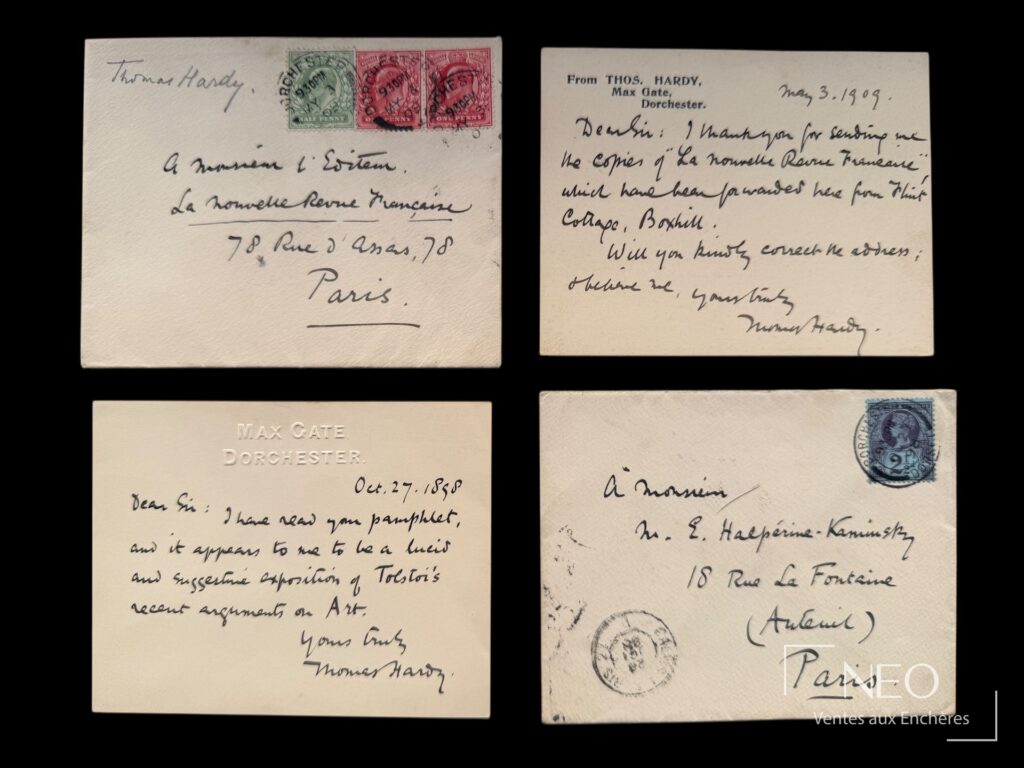 Thomas Hardy.
DORCHESTER
9.30PM
MY 3
HALF PENNY
DORCHESTER
9.30PM
MY 3
ONE PENNY
DORCHESTER
9.30PM
MY 3
ONE PENNY
A Monsieur l'Editeur.
La Nouvelle Revue Française
78 Rue d'Assas, 78
Paris.
From THOS. HARDY,
Max Gate,
Dorchester.
May 3. 1909.
Dear Sir: I thank you for sending me
the copies of "La Nouvelle Revue Française"
which have been forwarded here from Flint
Cottage, Boxhill.
Will you kindly correct the address;
& believe me, yours truly
Thomas Hardy.
MAX GATE
DORCHESTER.
Oct. 27. 1898
Dear Sir: I have read your pamphlet,
and it appears to me to be a lucid
and suggestive exposition of Tolstoi's
recent arguments on Art.
Yours truly
Thomas Hardy.
À Monsieur
M. E. Halpérine-Kaminsky
18 Rue La Fontaine
(Auteuil)
Paris.
NEO
Ventes aux Enchères